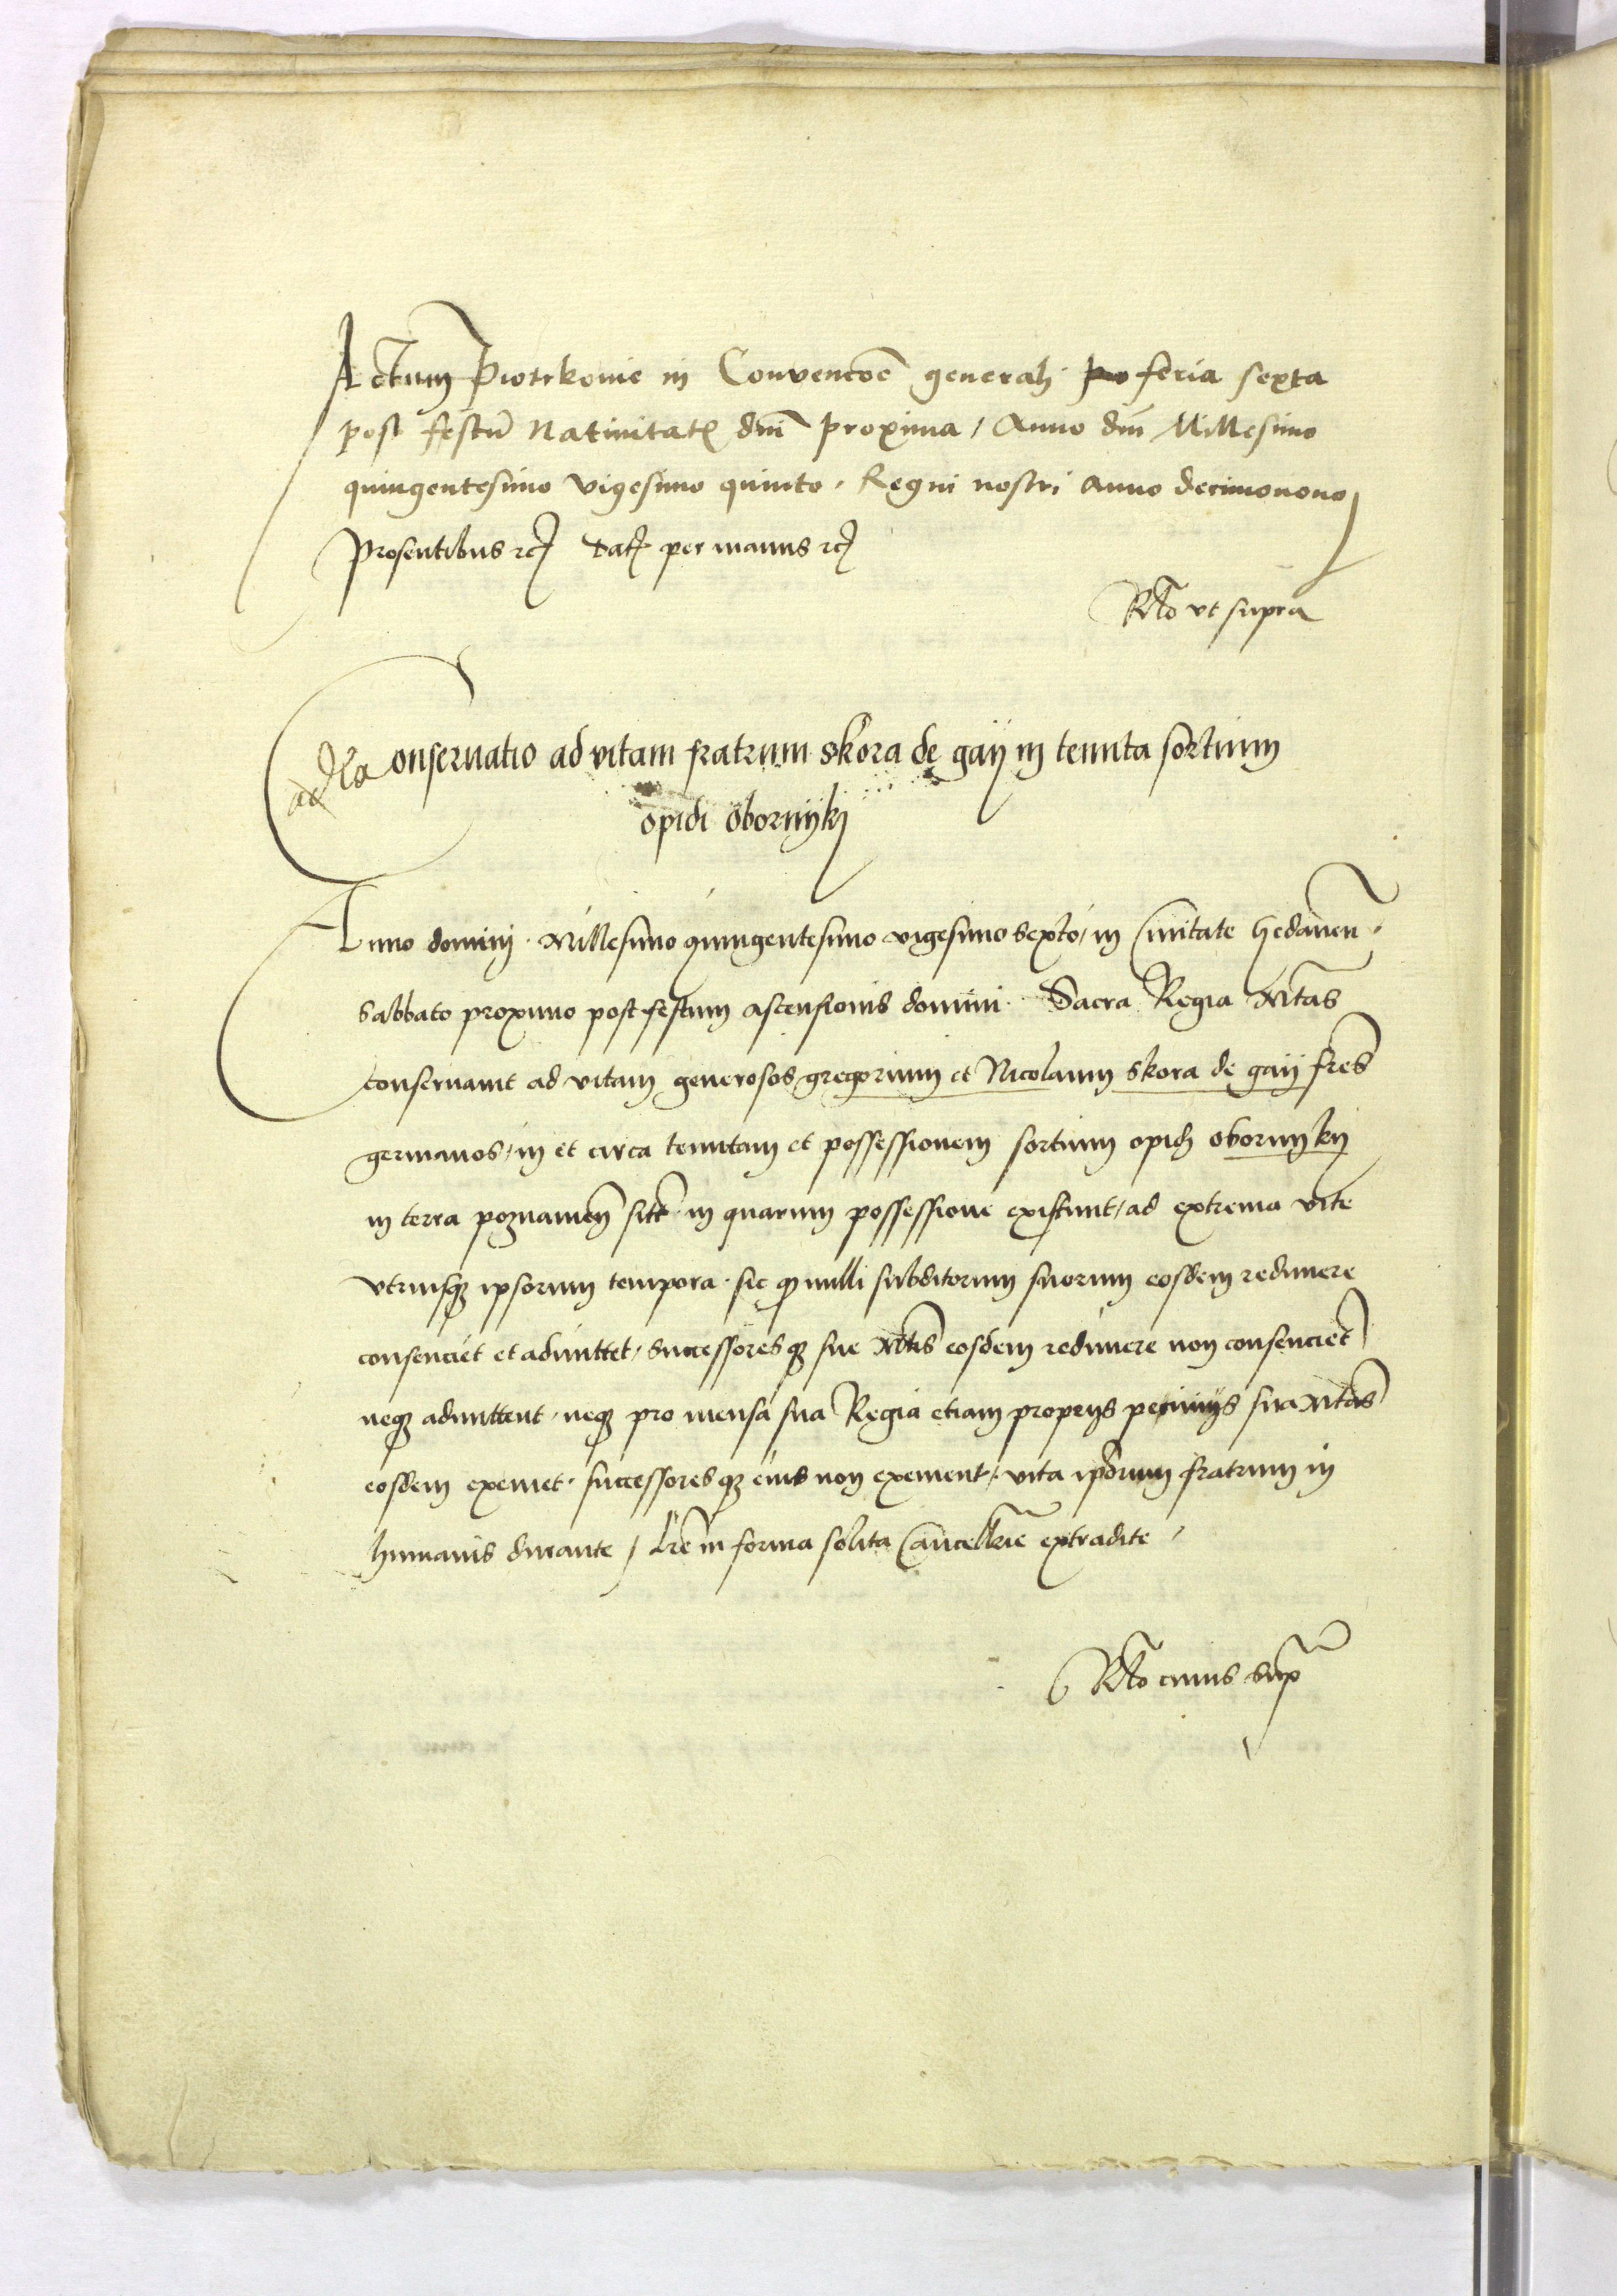 Actum Piotrkovie in Convencoē generali feria sexta
post festū Nativitatꝭ dnī proxima / Anno dnī Millesimo
quingentesimo vigesimo quinto. Regni nostri anno decimonono
Presentibus ꝛcͣ Datꝭ per manus ꝛcͣ
Rlo vt supra
Conservatio ad vitam fratrum skora de gaÿ in tenuta sortium
opidi obornÿkj
Anno dominj. Millesimo quingentesimo vigesimo sexto, in Civitate Gedanen̄.
Sabbato proximo post festum ascensionis domini. Sacra Regia Mtas
conservavit ad vitam generosos gregorium et Nicolaum skora de gaÿ fres
germanos, in et circa tenutam et possessionem sortium opidi obornÿkij
in terra poznanien̄ sitt. in quarum possessione existunt, ad extrema vite
vtriusqꝫ ipsorum tempora. sic qꝫ nulli subditorum suorum eosdem redimere
consenciet et admittet, Successoresqꝫ sue Mtis eosdem redimere non consencient
neqꝫ admittent, neqꝫ pro mensa sua Regia etiam proprijs pecunijs sua Mtas
eosdem exemet. successoresqꝫ eius non exement, vita ipsorum fratrum in
humanis durante / Lr̄e in forma solita Cancellarie extradite.
Rlo cuius sup̄